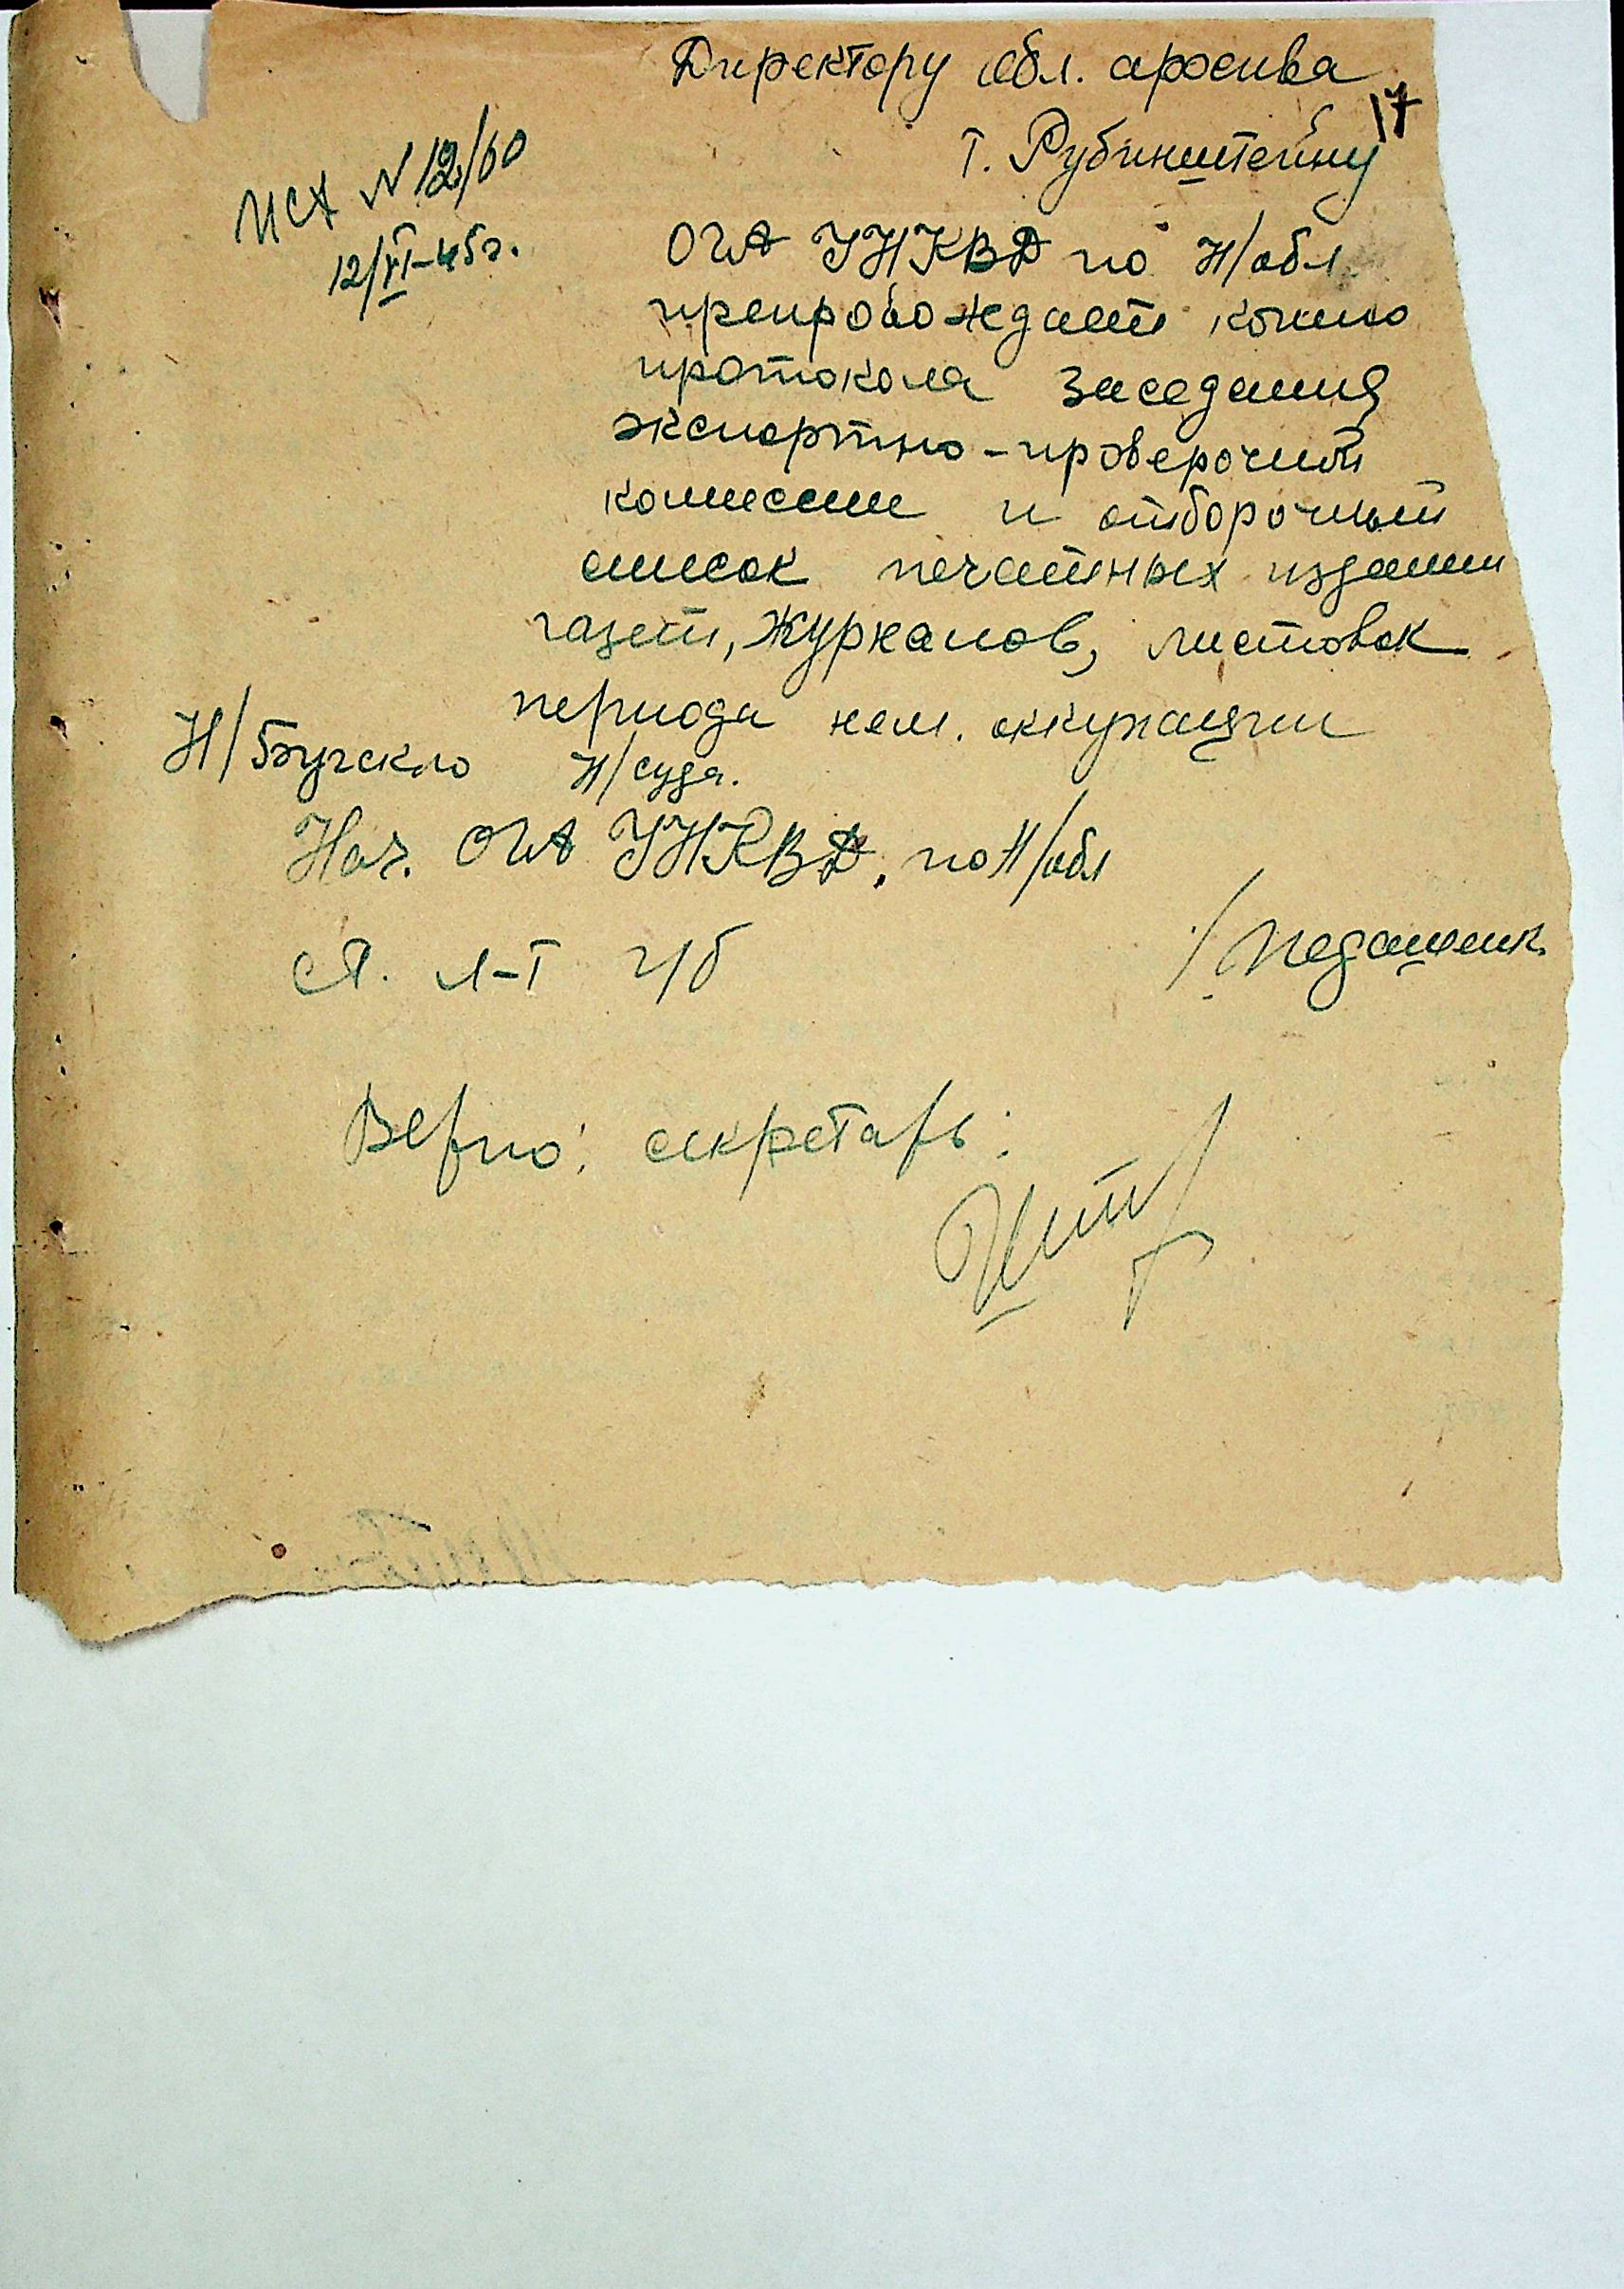 Директору обл. архива
17
т. Рубинштейну
Исх N 12/60
12/VI-45г.
ОГА УНКВД по Н/обл
препровождает копию
протокола заседания
экспортно-проверочной
комиссии и отборочный
список печатных издании
газет, журналов, листовок
периода нем. оккупации
Н/Бугского Н/суда.
Нач. ОГА УНКВД, по Н/обл
ст. л-т г/б
/Недашенк
Верно: секретарь: